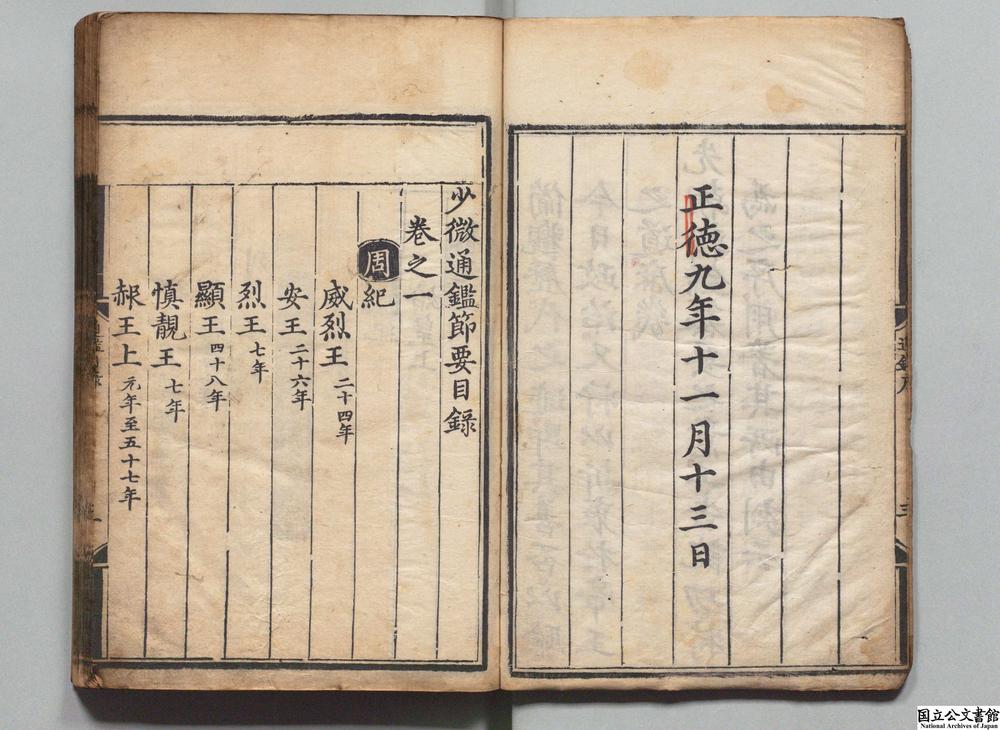 正徳九年十一月十三日
少微通鑑節要目録
卷之一
周紀
威烈王二十四年
安王二十六年
烈王七年
顯王四十八年
慎靚王七年
赧王上元年至五十七年
国立公文書館
National Archives of Japan